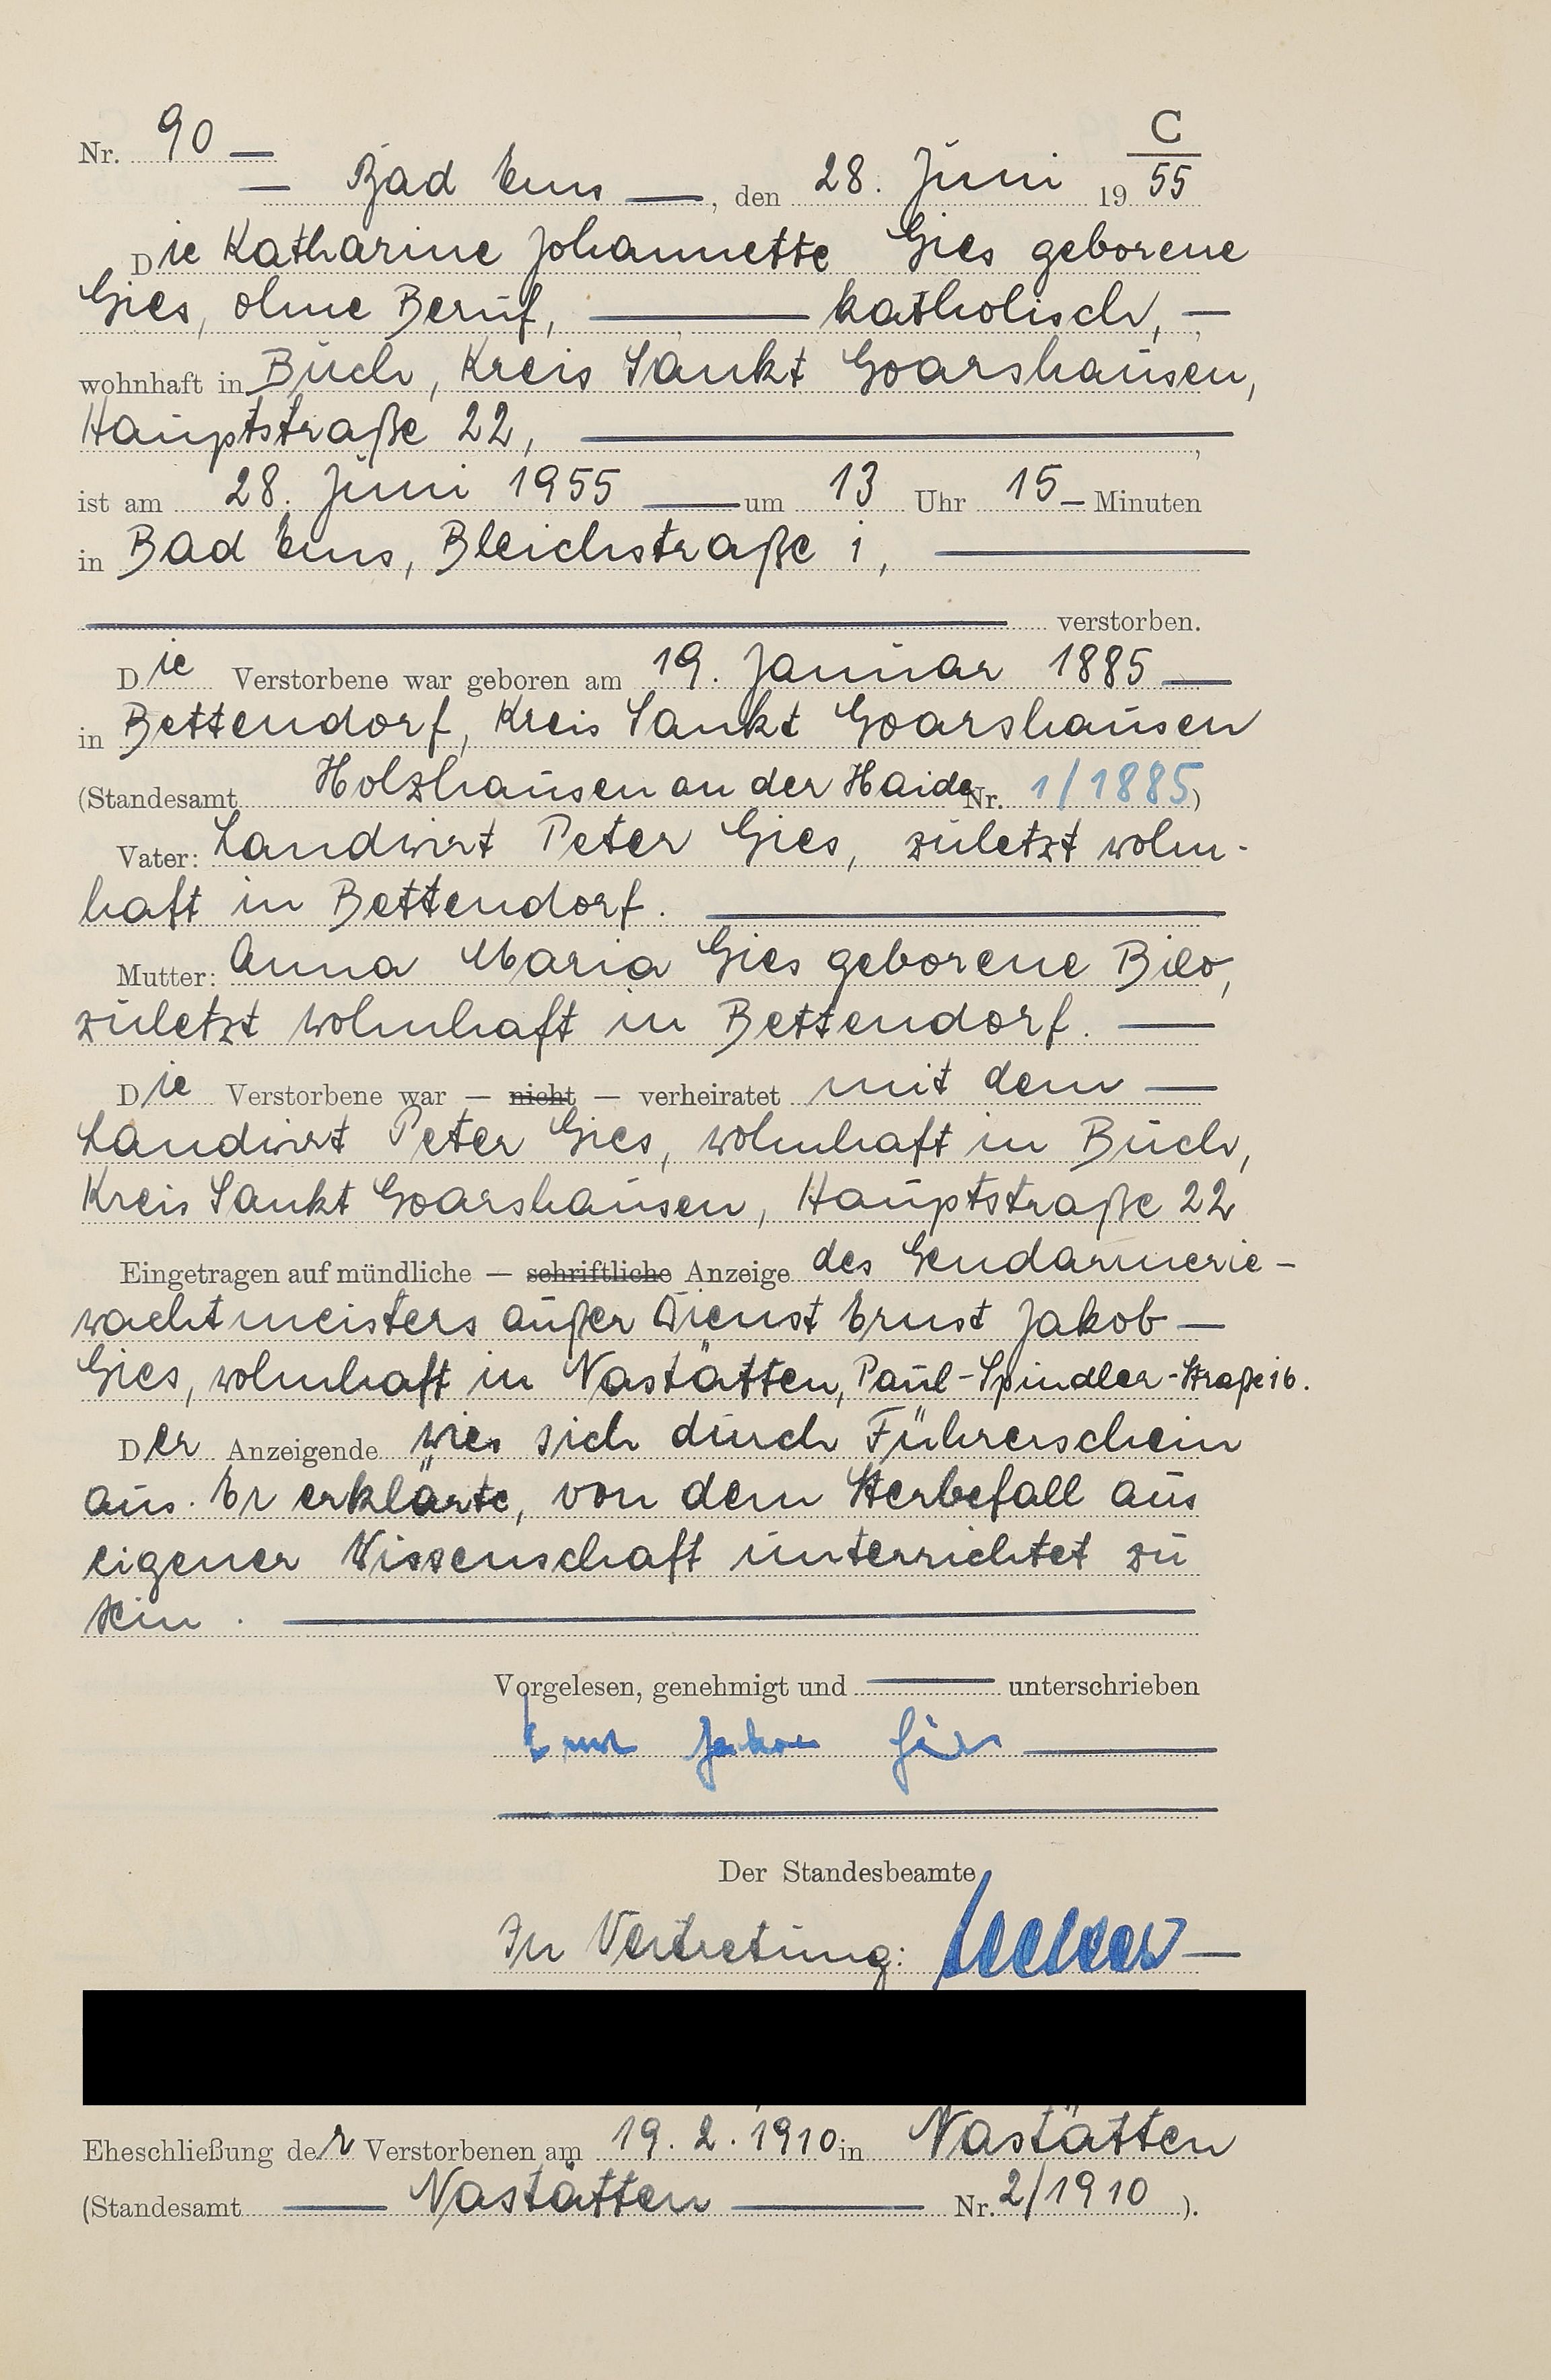 C
Nr. 90 —
— Bad Ems —, den 28. Juni 19 55
Die Katharine Johannette Gies geborene
Gies, ohne Beruf, — katholisch, —
wohnhaft in Buch, Kreis Sankt Goarshausen,
Hauptstraße 22, —
ist am 28. Juni 1955 — um 13 Uhr 15 — Minuten
in Bad Ems, Bleichstraße 1, —
— verstorben.
Die Verstorbene war geboren am 19. Januar 1885 —
in Bettendorf, Kreis Sankt Goarshausen
(Standesamt Holzhausen an der Haide Nr. 1/1885)
Vater: Landwirt Peter Gies, zuletzt wohn-
haft in Bettendorf. —
Mutter: Anna Maria Gies geborene Bilo,
zuletzt wohnhaft in Bettendorf. —
Die Verstorbene war — nicht — verheiratet mit dem —
Landwirt Peter Gies, wohnhaft in Buch,
Kreis Sankt Goarshausen, Hauptstraße 22
Eingetragen auf mündliche — schriftliche Anzeige des Gendarmerie-
wachtmeisters außer Dienst Ernst Jakob —
Gies, wohnhaft in Nastätten, Paul-Spindler-Straße 16.
Der Anzeigende wies sich durch Führerschein
aus. Er erklärte, von dem Sterbefall aus
eigener Wissenschaft unterrichtet zu
sein. —
Vorgelesen, genehmigt und — unterschrieben
Ernst Jakob Gies —
Der Standesbeamte
In Vertretung: —
Eheschließung der Verstorbenen am 19. 2. 1910 in Nastätten
(Standesamt — Nastätten — Nr. 2/1910 ).